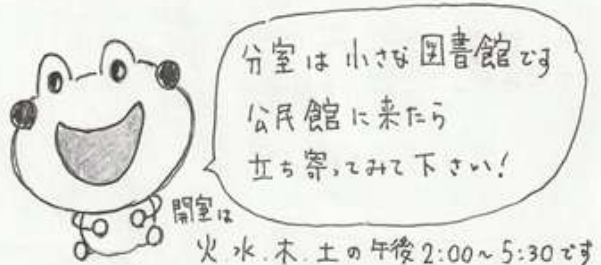 分室は小さな図書館です
公民館に来たら
立ち寄ってみて下さい!
開室は
火.水.木.土の午後2:00~5:30です